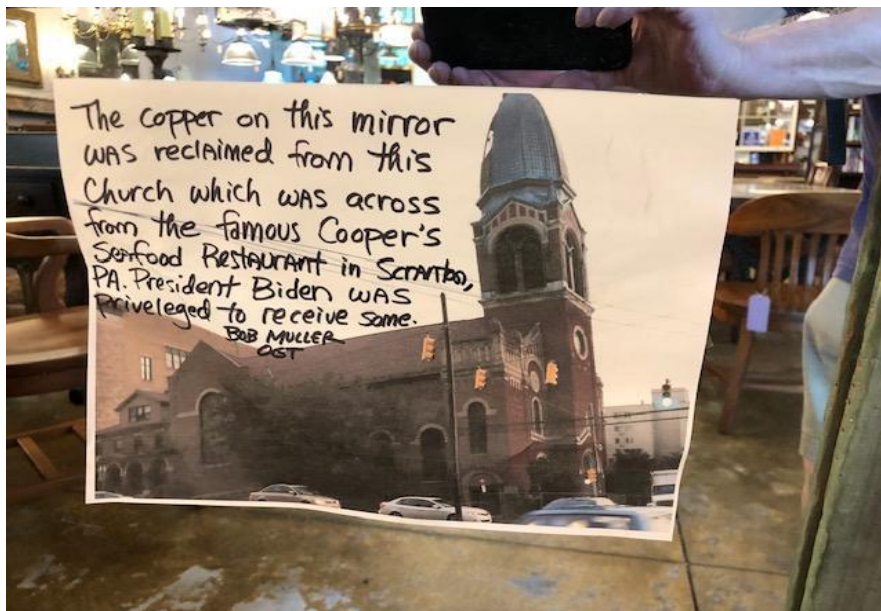 The copper on this mirror
was reclaimed from this
Church which was across
from the famous Cooper's
Seafood Restaurant in Scranton,
PA. President Biden was
priveleged to receive some.
BOB MULLER
OST